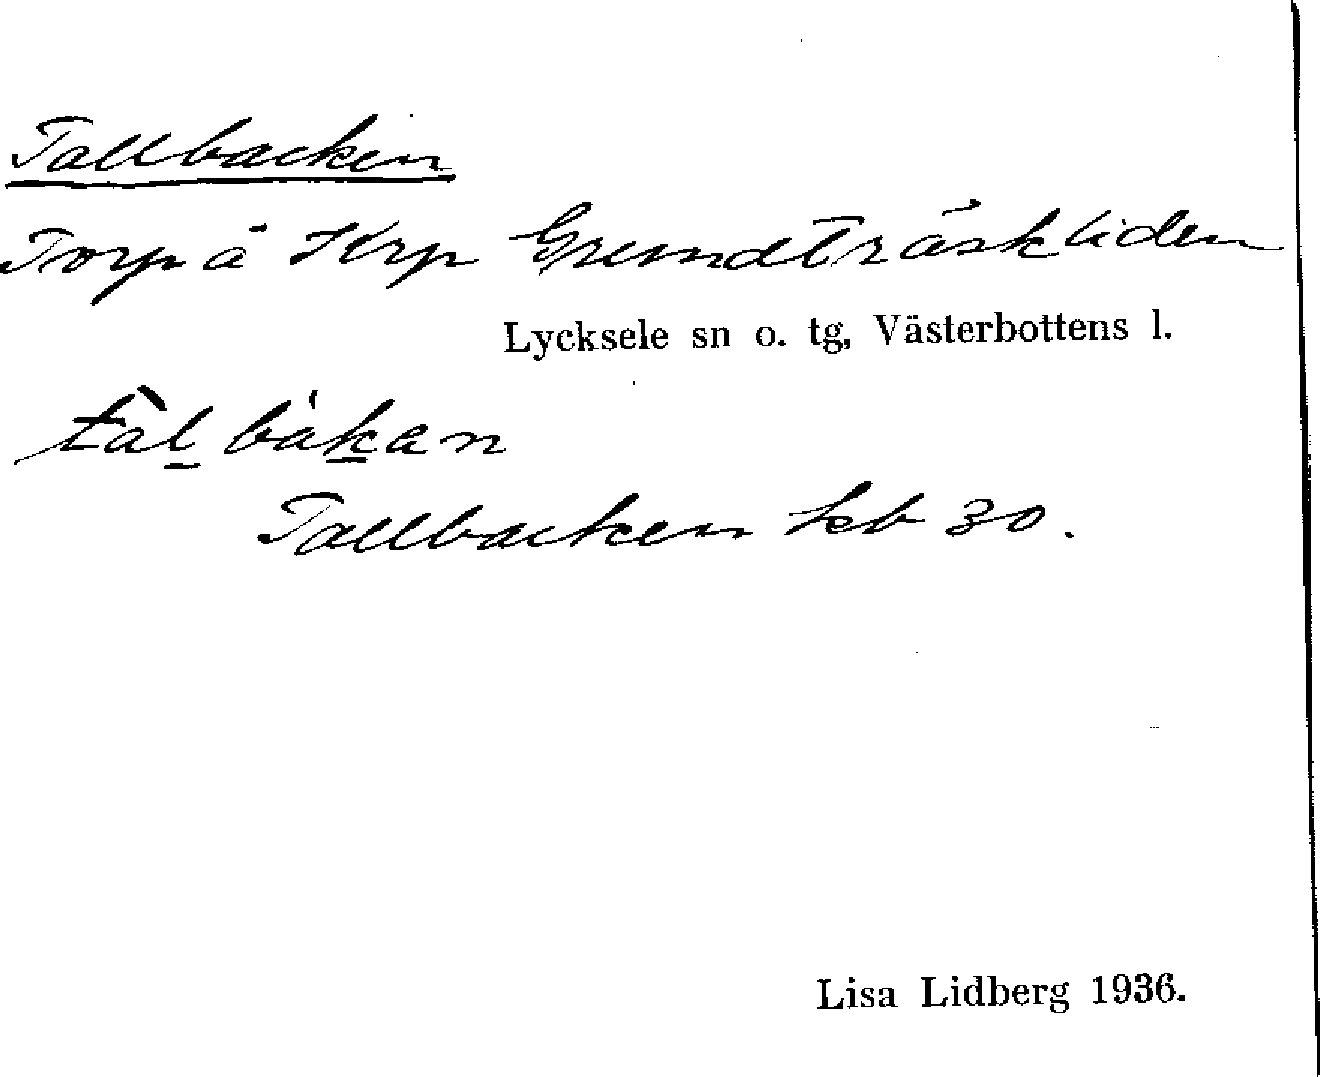 Tallbacken
Torp å Krp Grundträskliden
Lycksele sn o. tg, Västerbottens l.
tàl bákan
Tallbacken kb 30.
Lisa Lidberg 1936.